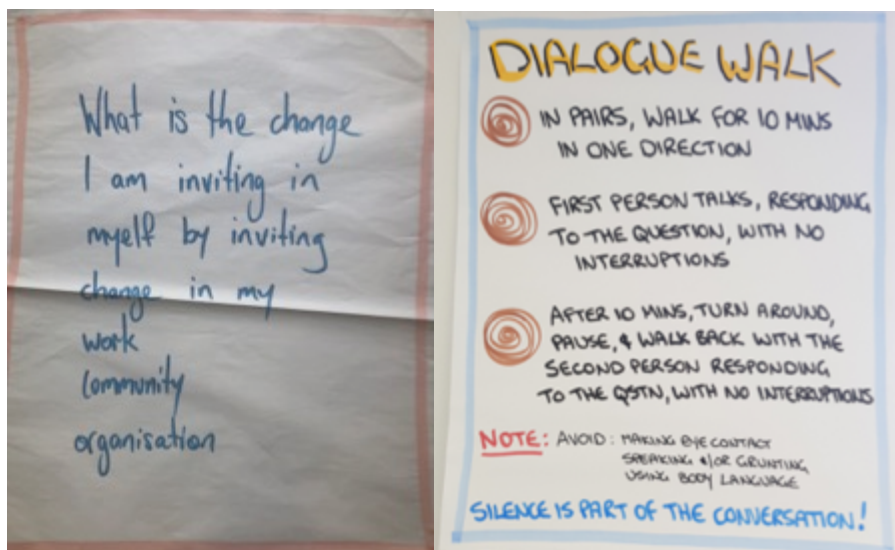 What is the change
I am inviting in
myelf by inviting
change in my
work
community
organisation
DIALOGUE WALK
IN PAIRS, WALK FOR 10 MINS
IN ONE DIRECTION
FIRST PERSON TALKS, RESPONDING
TO THE QUESTION, WITH NO
INTERRUPTIONS
AFTER 10 MINS, TURN AROUND,
PAUSE, & WALK BACK WITH THE
SECOND PERSON RESPONDING
TO THE QSTN, WITH NO INTERRUPTIONS
NOTE: AVOID: MAKING EYE CONTACT
SPEAKING &/OR GRUNTING
USING BODY LANGUAGE
SILENCE IS PART OF THE CONVERSATION!